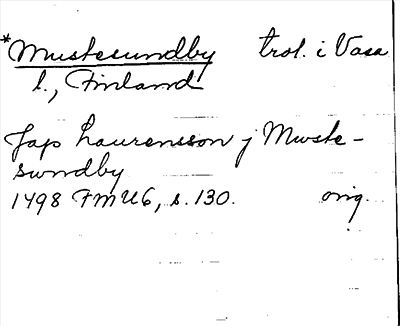 *Mustesundby trol. i Vasa
l., Finland
Jap Laurensson j Mwste-
swndby
1498 FMU6, s. 130. orig.